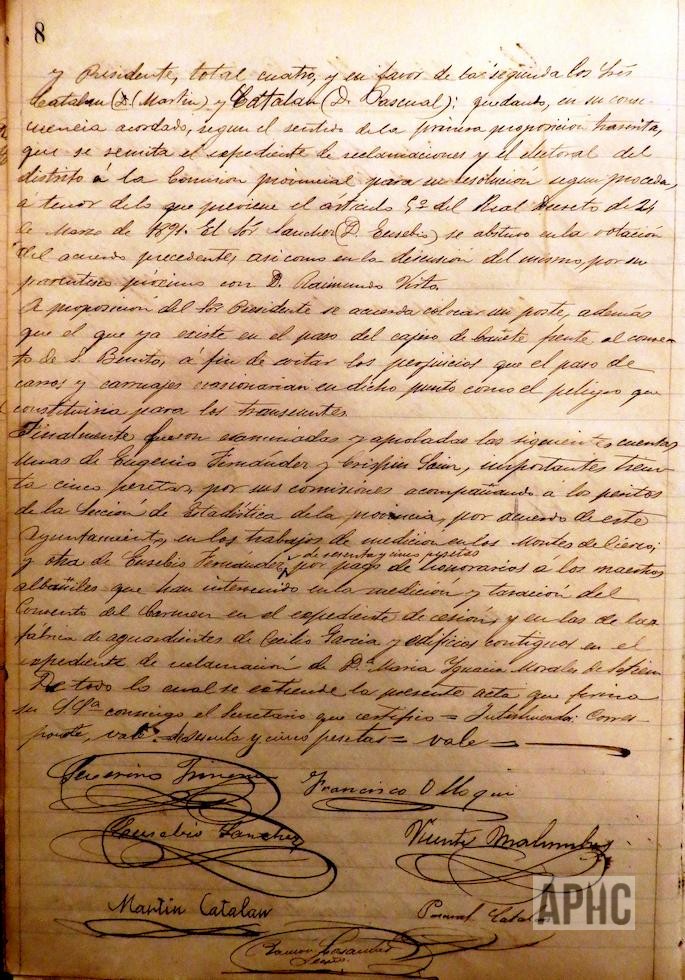 8
y Presidente, total cuatro, y en favor de la segunda los Sres
Catalan (D. Martin) y Catalan (D. Pascual); quedando, en su conse-
cuencia acordado, segun el sentido de la primera proposicion trascrita,
que se remita el espediente de reclamaciones y el electoral del
distrito á la Comision provincial para su resolucion segun proceda,
a tenor de lo que previene el articulo 5º del Real Decreto de 24
de Marzo de 1891. El Sór Sanchez (D. Eusebio) se abstuvo en la votacion
del acuerdo precedente, asi como en la discusion del mismo, por su
parentesco próximo con D. Raimundo
A proposicion del Sor Presidente se acuerda colocar un poste, ademas
que el que ya existe en el paso del cajero de frente al conven-
to de S. Benito, á fin de evitar los perjuicios que el paso de
carros y carruajes ocasionarian en dicho punto como el peligro que
constituiria para los transeuntes.
Finalmente fueron examinadas y aprobadas las siguientes cuentas
unas de Eugenio Fernández y Crispin Sainz, importantes trein-
ta cinco pesetas, por sus comisiones acompañando á los peritos
de la Sección de Estadística de la provincia, por acuerdo de este
Ayuntamiento, en los trabajos de medicion en los Montes de Cierzo;
de sesenta y cinco pesetas
y otra de Eusebio Fernández, por pago de honorarios a los maestros
albañiles que han intervenido en la medición y tasación del
Convento del Carmen en el espediente de cesión, y en las de la
fábrica de aguardientes de Cecilio Garcia y edificios contiguos en el
espediente de reclamación de Dª Maria Ignacia Morales de
De todo lo cual se estiende la presente acta que firma
su SSª conmigo el Secretario que certifico = Interlineado: Corres-
ponde, vale. sesenta y cinco pesetas = vale =
Severino Jimenez
Francisco Olloqui
Eusebio Sanchez
Vicente Malumbres
Martin Catalan
Pascual Catalan
Ramon
Secrio.
APHC